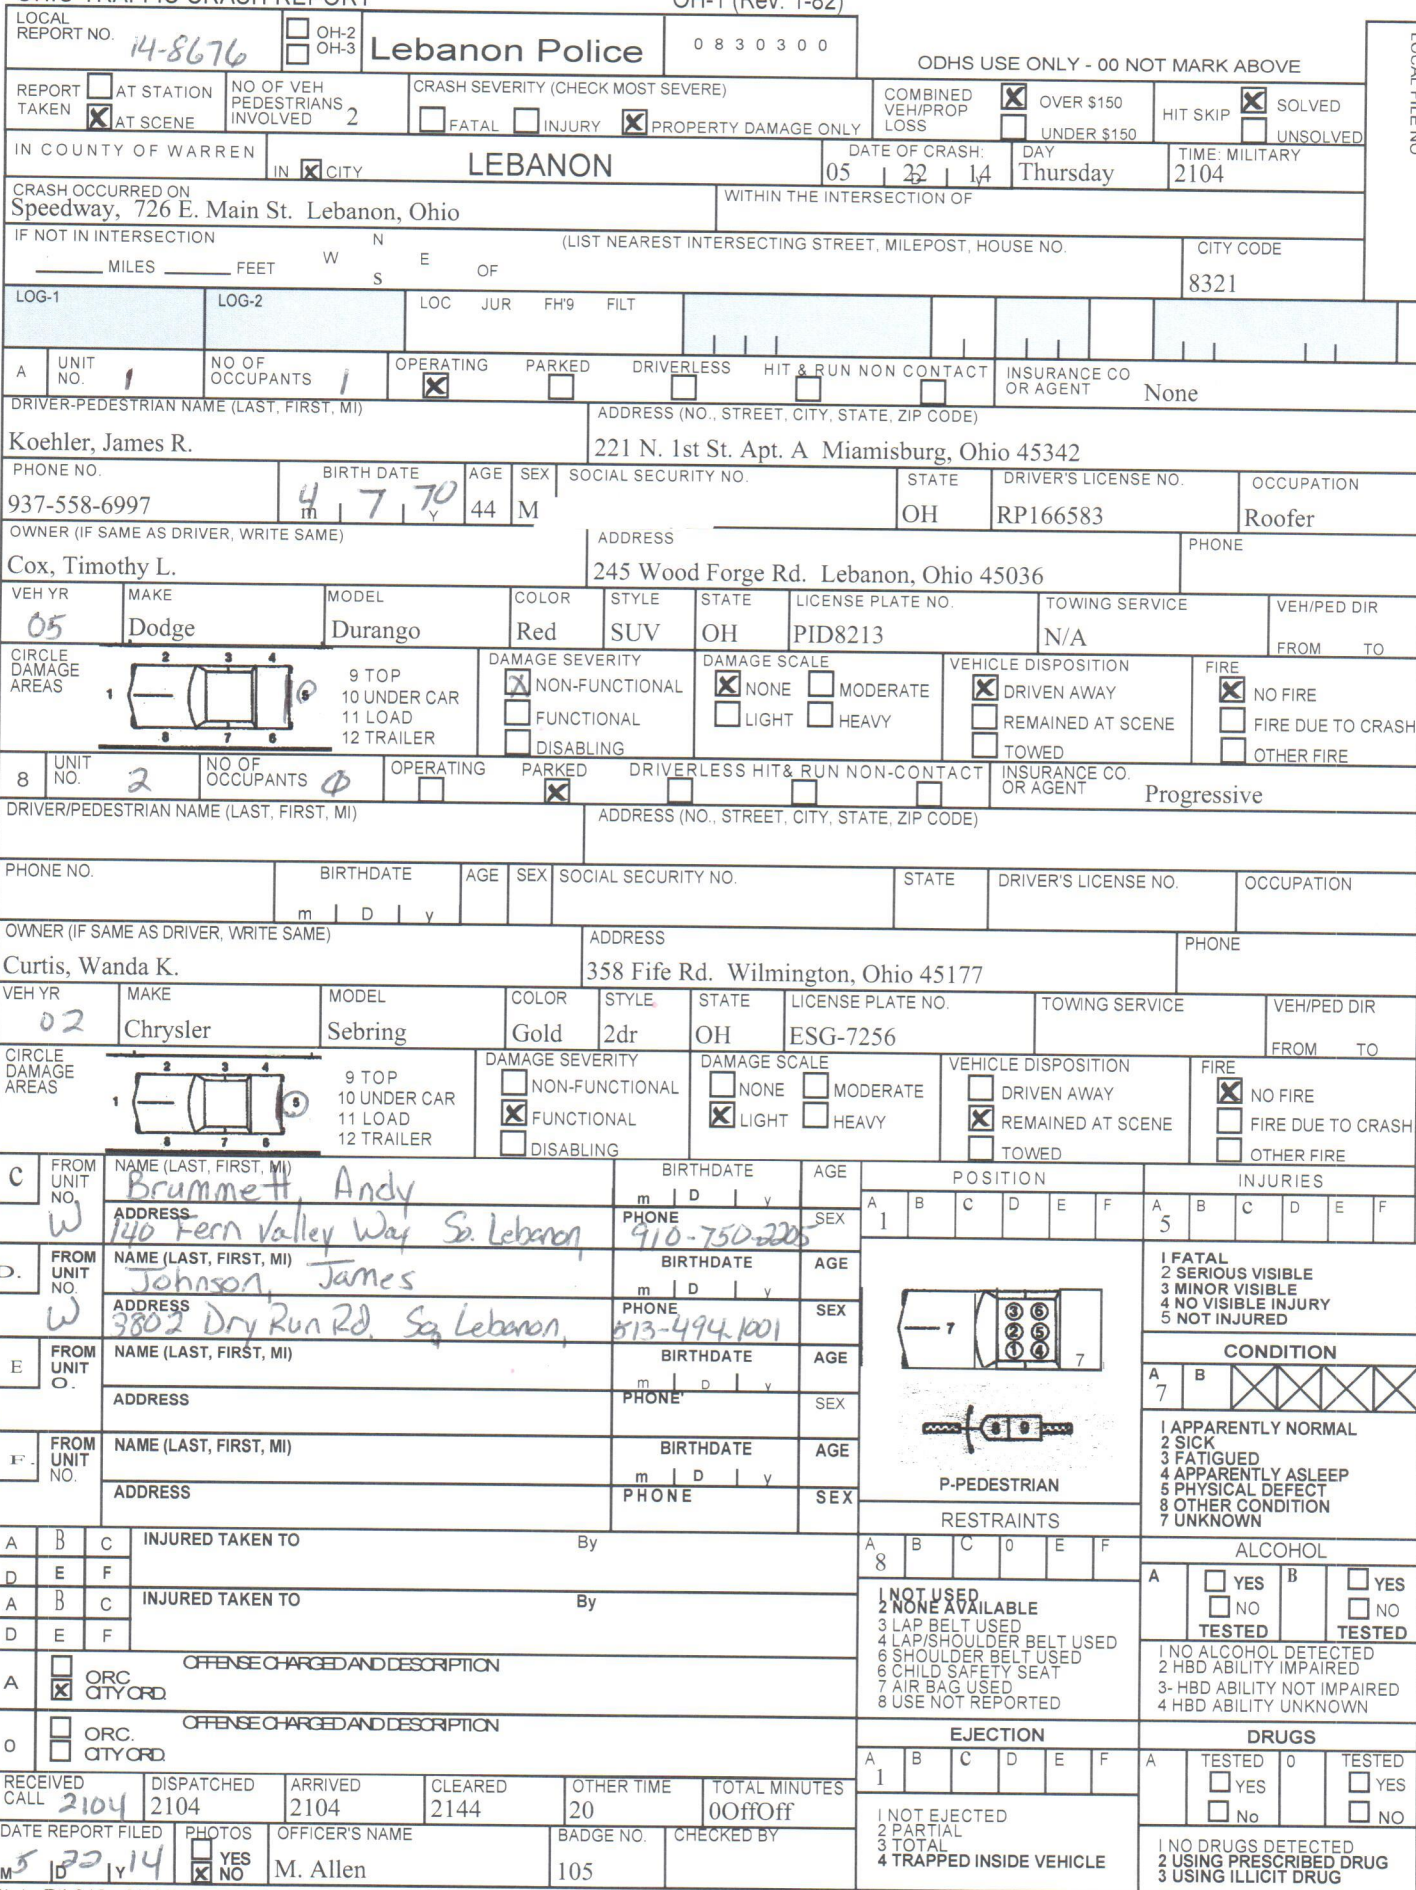 OHIO TRAFFIC CRASH REPORT OH-1 (Rev. 1-82)
LOCAL REPORT NO. 14-8676 OH-2 OH-3 Lebanon Police 0 8 3 0 3 0 0
ODHS USE ONLY - 00 NOT MARK ABOVE
LOCAL FILE NO
REPORT TAKEN AT STATION AT SCENE NO OF VEH PEDESTRIANS INVOLVED 2
CRASH SEVERITY (CHECK MOST SEVERE) FATAL INJURY PROPERTY DAMAGE ONLY
COMBINED VEH/PROP LOSS OVER $150 UNDER $150 HIT SKIP SOLVED UNSOLVED
IN COUNTY OF WARREN IN CITY LEBANON
DATE OF CRASH: 05 22 14 DAY Thursday TIME: MILITARY 2104
CRASH OCCURRED ON WITHIN THE INTERSECTION OF
Speedway, 726 E. Main St. Lebanon, Ohio
IF NOT IN INTERSECTION N (LIST NEAREST INTERSECTING STREET, MILEPOST, HOUSE NO. CITY CODE
MILES FEET W S E OF 8321
LOG-1 LOG-2 LOC JUR FH'9 FILT
A UNIT NO. 1 NO OF OCCUPANTS 1 OPERATING PARKED DRIVERLESS HIT & RUN NON CONTACT INSURANCE CO OR AGENT None
DRIVER-PEDESTRIAN NAME (LAST, FIRST, MI) ADDRESS (NO., STREET, CITY, STATE, ZIP CODE)
Koehler, James R. 221 N. 1st St. Apt. A Miamisburg, Ohio 45342
PHONE NO. BIRTH DATE AGE SEX SOCIAL SECURITY NO. STATE DRIVER'S LICENSE NO. OCCUPATION
937-558-6997 m 4 7 Y 70 44 M OH RP166583 Roofer
OWNER (IF SAME AS DRIVER, WRITE SAME) ADDRESS PHONE
Cox, Timothy L. 245 Wood Forge Rd. Lebanon, Ohio 45036
VEH YR MAKE MODEL COLOR STYLE STATE LICENSE PLATE NO. TOWING SERVICE VEH/PED DIR
05 Dodge Durango Red SUV OH PID8213 N/A FROM TO
CIRCLE DAMAGE AREAS 1 2 3 4 5 6 7 8
9 TOP
10 UNDER CAR
11 LOAD
12 TRAILER
DAMAGE SEVERITY NON-FUNCTIONAL FUNCTIONAL DISABLING
DAMAGE SCALE NONE MODERATE LIGHT HEAVY
VEHICLE DISPOSITION DRIVEN AWAY REMAINED AT SCENE TOWED
FIRE NO FIRE FIRE DUE TO CRASH OTHER FIRE
8 UNIT NO. 2 NO OF OCCUPANTS 0 OPERATING PARKED DRIVERLESS HIT& RUN NON-CONTACT INSURANCE CO. OR AGENT Progressive
DRIVER/PEDESTRIAN NAME (LAST, FIRST, MI) ADDRESS (NO., STREET, CITY, STATE, ZIP CODE)
PHONE NO. BIRTHDATE AGE SEX SOCIAL SECURITY NO. STATE DRIVER'S LICENSE NO. OCCUPATION
m D y
OWNER (IF SAME AS DRIVER, WRITE SAME) ADDRESS PHONE
Curtis, Wanda K. 358 Fife Rd. Wilmington, Ohio 45177
VEH YR MAKE MODEL COLOR STYLE STATE LICENSE PLATE NO. TOWING SERVICE VEH/PED DIR
02 Chrysler Sebring Gold 2dr OH ESG-7256 FROM TO
CIRCLE DAMAGE AREAS 1 2 3 4 5 6 7 8
9 TOP
10 UNDER CAR
11 LOAD
12 TRAILER
DAMAGE SEVERITY NON-FUNCTIONAL FUNCTIONAL DISABLING
DAMAGE SCALE NONE MODERATE LIGHT HEAVY
VEHICLE DISPOSITION DRIVEN AWAY REMAINED AT SCENE TOWED
FIRE NO FIRE FIRE DUE TO CRASH OTHER FIRE
C FROM UNIT NO. W NAME (LAST, FIRST, MI) Brummett, Andy BIRTHDATE m D y AGE
ADDRESS 140 Fern Valley Way So. Lebanon, PHONE 910-750-2205 SEX
D. FROM UNIT NO. W NAME (LAST, FIRST, MI) Johnson, James BIRTHDATE m D y AGE
ADDRESS 3802 Dry Run Rd. So, Lebanon, PHONE 513-494-1001 SEX
E FROM UNIT O. NAME (LAST, FIRST, MI) BIRTHDATE m D y AGE
ADDRESS PHONE' SEX
F. FROM UNIT NO. NAME (LAST, FIRST, MI) BIRTHDATE m D y AGE
ADDRESS PHONE SEX
POSITION
A 1 B C D E F
7 3 6 2 5 1 4 7
8 9
P-PEDESTRIAN
INJURIES
A 5 B C D E F
I FATAL
2 SERIOUS VISIBLE
3 MINOR VISIBLE
4 NO VISIBLE INJURY
5 NOT INJURED
CONDITION
A 7 B
I APPARENTLY NORMAL
2 SICK
3 FATIGUED
4 APPARENTLY ASLEEP
5 PHYSICAL DEFECT
8 OTHER CONDITION
7 UNKNOWN
A B C D E F INJURED TAKEN TO By
A B C D E F INJURED TAKEN TO By
RESTRAINTS
A 8 B C 0 E F
I NOT USED
2 NONE AVAILABLE
3 LAP BELT USED
4 LAP/SHOULDER BELT USED
6 SHOULDER BELT USED
6 CHILD SAFETY SEAT
7 AIR BAG USED
8 USE NOT REPORTED
ALCOHOL
A YES NO TESTED B YES NO TESTED
I NO ALCOHOL DETECTED
2 HBD ABILITY IMPAIRED
3- HBD ABILITY NOT IMPAIRED
4 HBD ABILITY UNKNOWN
A ORC CITY ORD. OFFENSE CHARGED AND DESCRIPTION
0 ORC. CITY ORD. OFFENSE CHARGED AND DESCRIPTION
EJECTION
A 1 B C D E F
I NOT EJECTED
2 PARTIAL
3 TOTAL
4 TRAPPED INSIDE VEHICLE
DRUGS
A TESTED YES No 0 TESTED YES NO
I NO DRUGS DETECTED
2 USING PRESCRIBED DRUG
3 USING ILLICIT DRUG
RECEIVED CALL 2104 DISPATCHED 2104 ARRIVED 2104 CLEARED 2144 OTHER TIME 20 TOTAL MINUTES 0OffOff
DATE REPORT FILED M 5 D 22 Y 14 PHOTOS YES NO OFFICER'S NAME M. Allen BADGE NO. 105 CHECKED BY